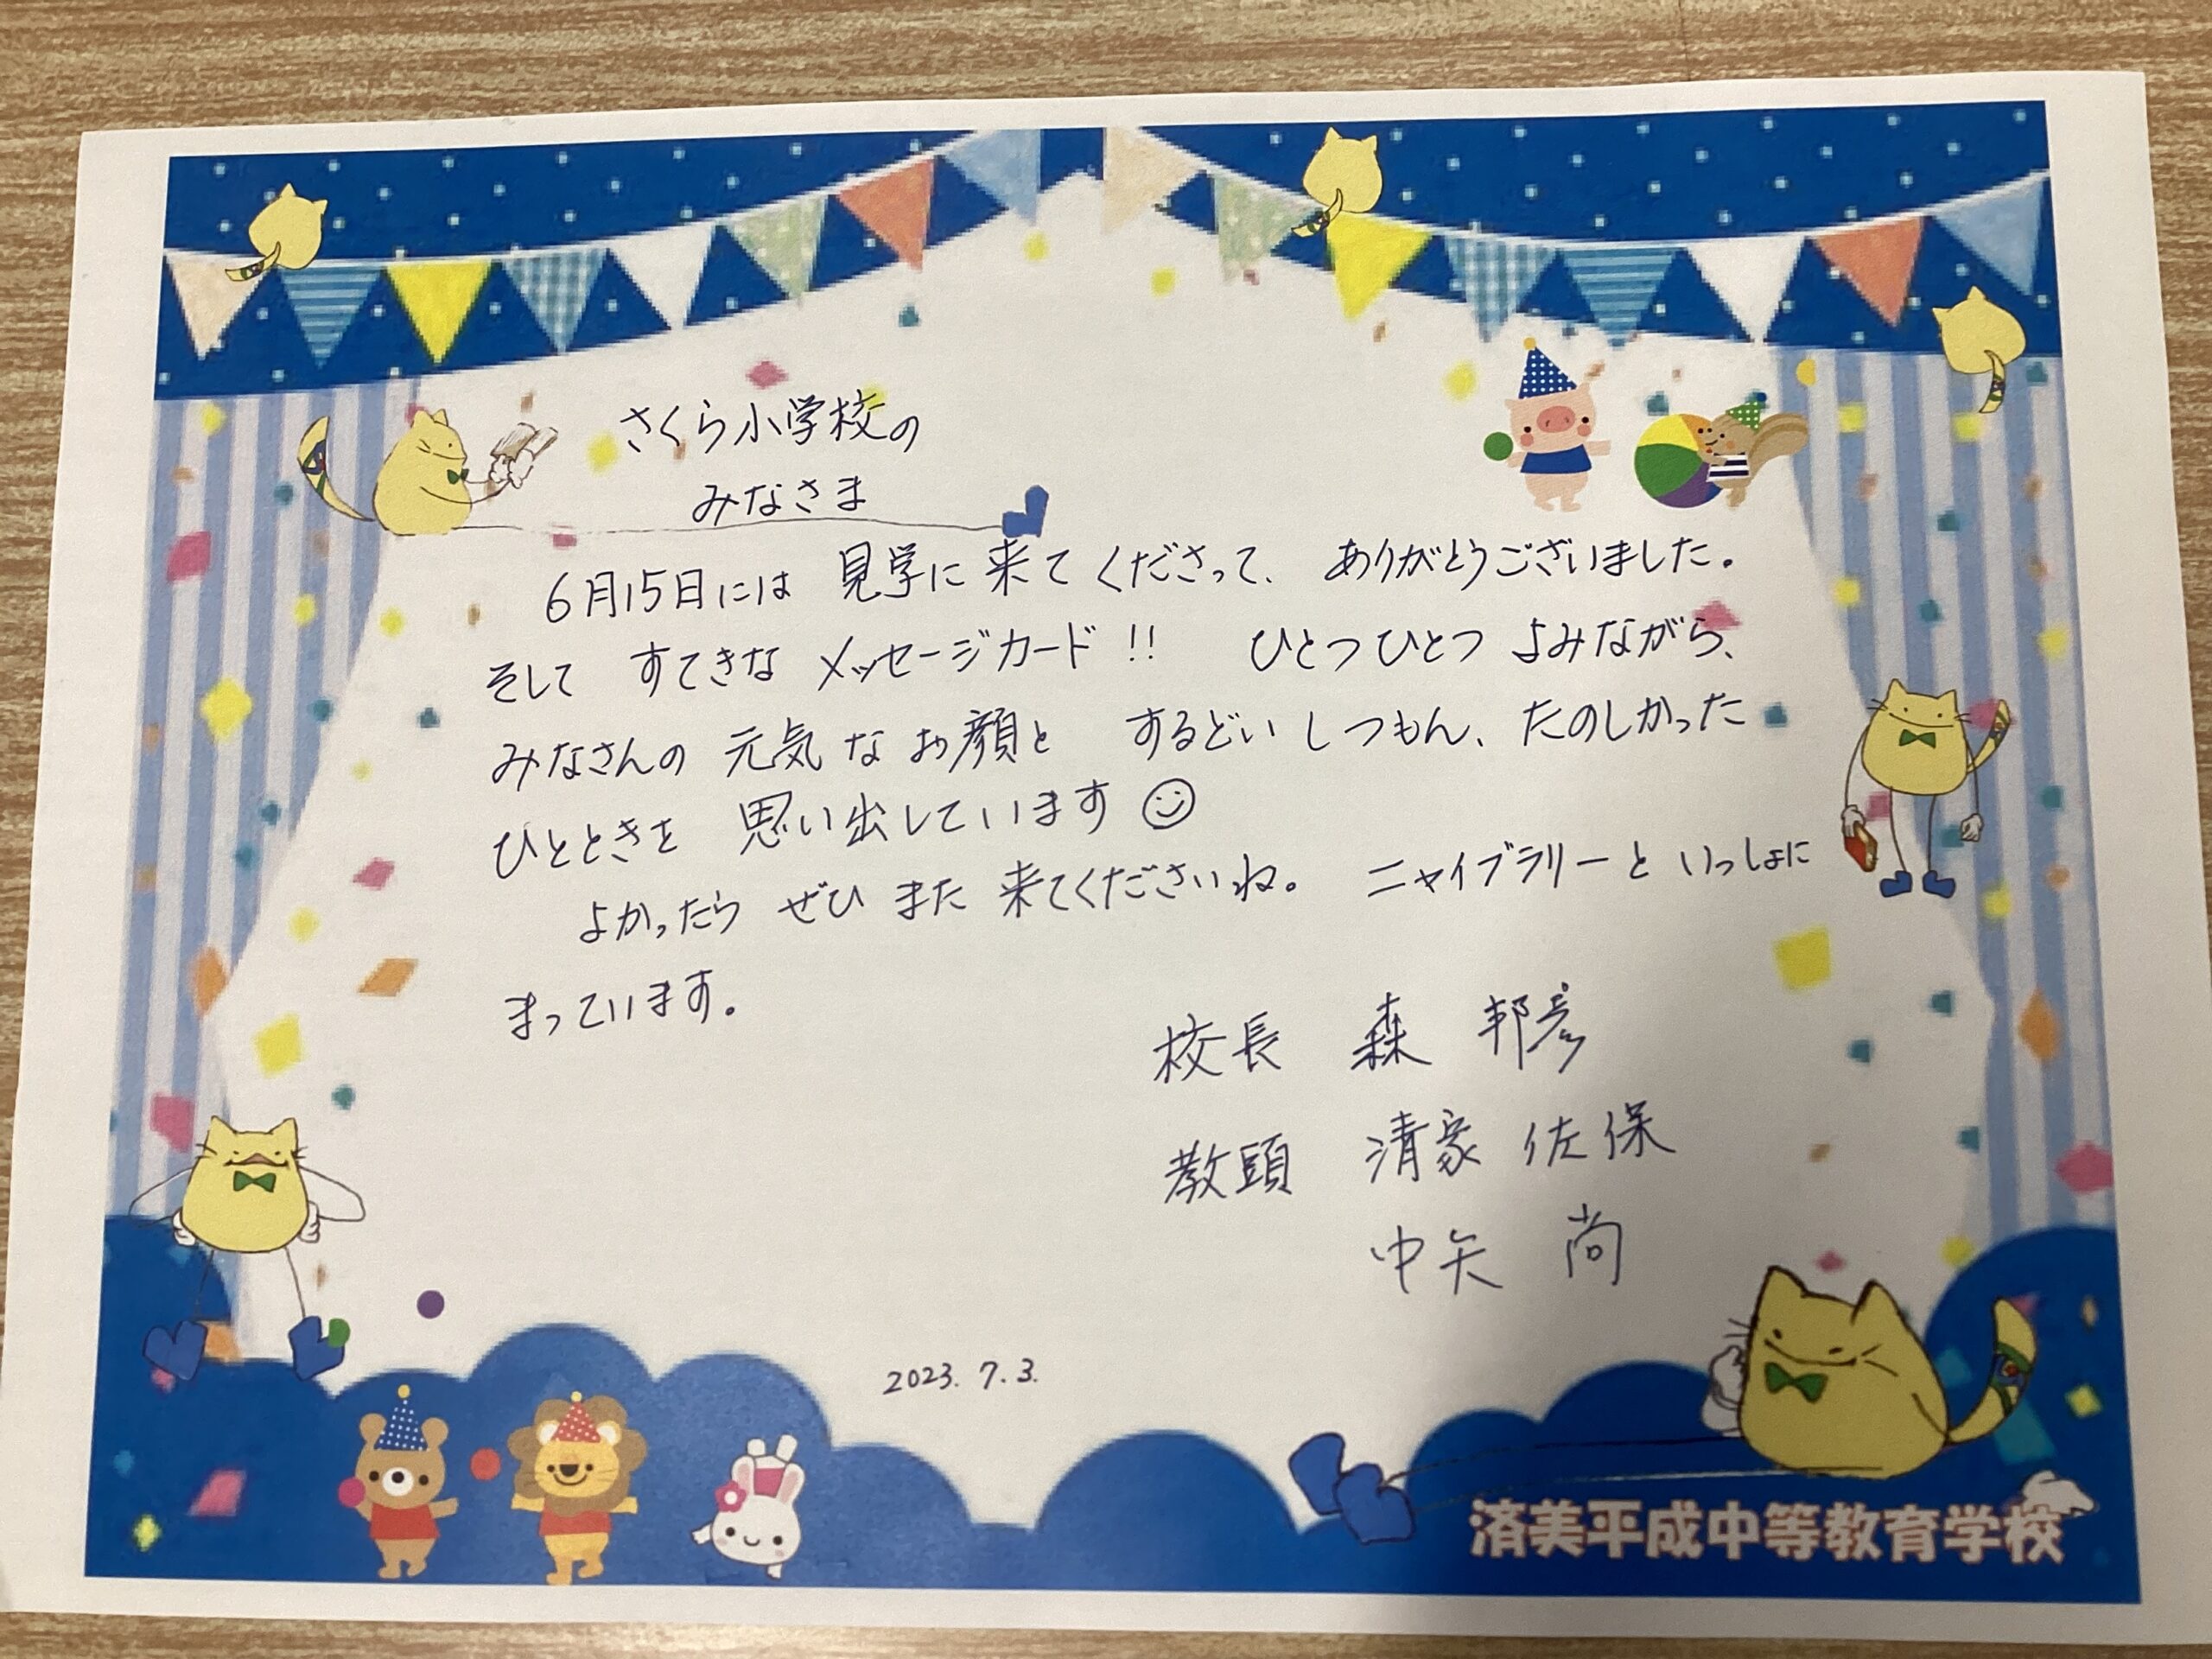 さくら小学校の
みなさま
6月15日には 見学に来てくださって、ありがとうございました。
そして すてきな メッセージカード!! ひとつひとつ よみながら、
みなさんの 元気な お顔と するどい しつもん、たのしかった
ひとときを 思い出しています☺
よかったら ぜひ また 来てくださいね。 ニャイブラリーと いっしょに
まっています。
校長 森 邦彦
教頭 清家 佐保
中矢 尚
2023. 7. 3.
済美平成中等教育学校